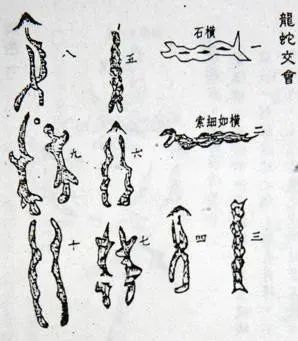 龍蛇交會
一
石橫
二
索細如橫
三
四
五
六
七
八
九
十